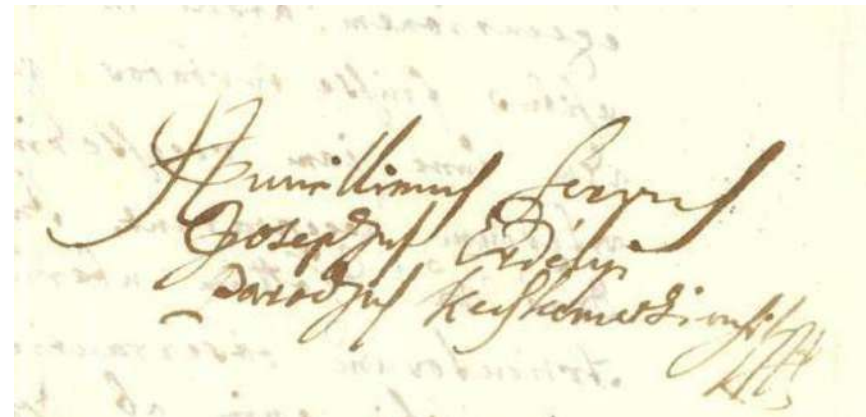 Humillimus Servus
Josephus Erdélyi
Parochus Kecskemetiensis